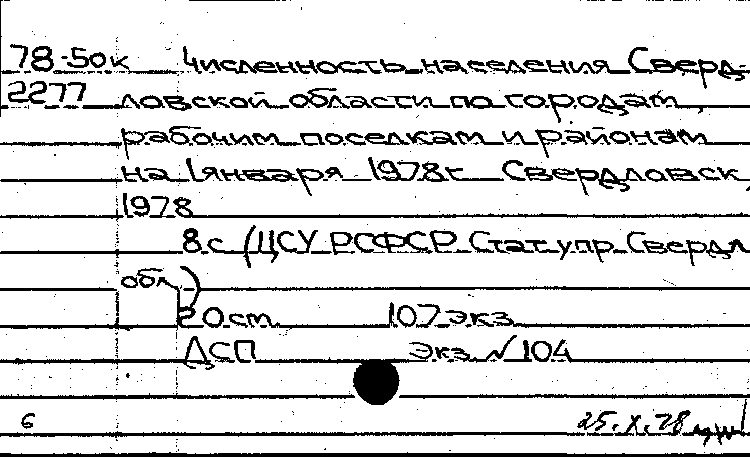 78-50к Численность населения Сверд-
2277 ловской области по городам,
рабочим поселкам и районам
на 1 января 1978г. Свердловск,
1978
8 с. (ЦСУ РСФСР. Стат. упр. Свердл.
обл.)
20 ст. 107 экз.
ДСП Экз. № 104
6 25.X.78